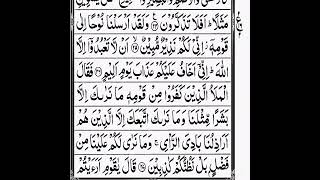 مَثَلًا ؕ اَفَلَا تَذَكَّرُوْنَ ﴿۲۴﴾ وَلَقَدْ اَرْسَلْنَا نُوْحًا اِلٰى
قَوْمِهٖۤ ؗ اِنِّىْ لَكُمْ نَذِيْرٌ مُّبِيْنٌ ﴿۲۵﴾ اَنْ لَّا تَعْبُدُوْۤا اِلَّا
اللّٰهَ ؕ اِنِّىْۤ اَخَافُ عَلَيْكُمْ عَذَابَ يَوْمٍ اَلِيْمٍ ﴿۲۶﴾ فَقَالَ
الْمَلَاُ الَّذِيْنَ كَفَرُوْا مِنْ قَوْمِهٖ مَا نَرٰىكَ اِلَّا
بَشَرًا مِّثْلَنَا وَمَا نَرٰىكَ اتَّبَعَكَ اِلَّا الَّذِيْنَ هُمْ
اَرَاذِلُنَا بَادِىَ الرَّاْىِ ۚ وَمَا نَرٰى لَكُمْ عَلَيْنَا مِنْ
فَضْلٍۭ بَلْ نَظُنُّكُمْ كٰذِبِيْنَ ﴿۲۷﴾ قَالَ يٰقَوْمِ اَرَءَيْتُمْ